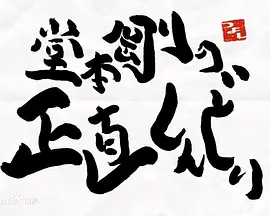 堂本剛の
正直しんどい